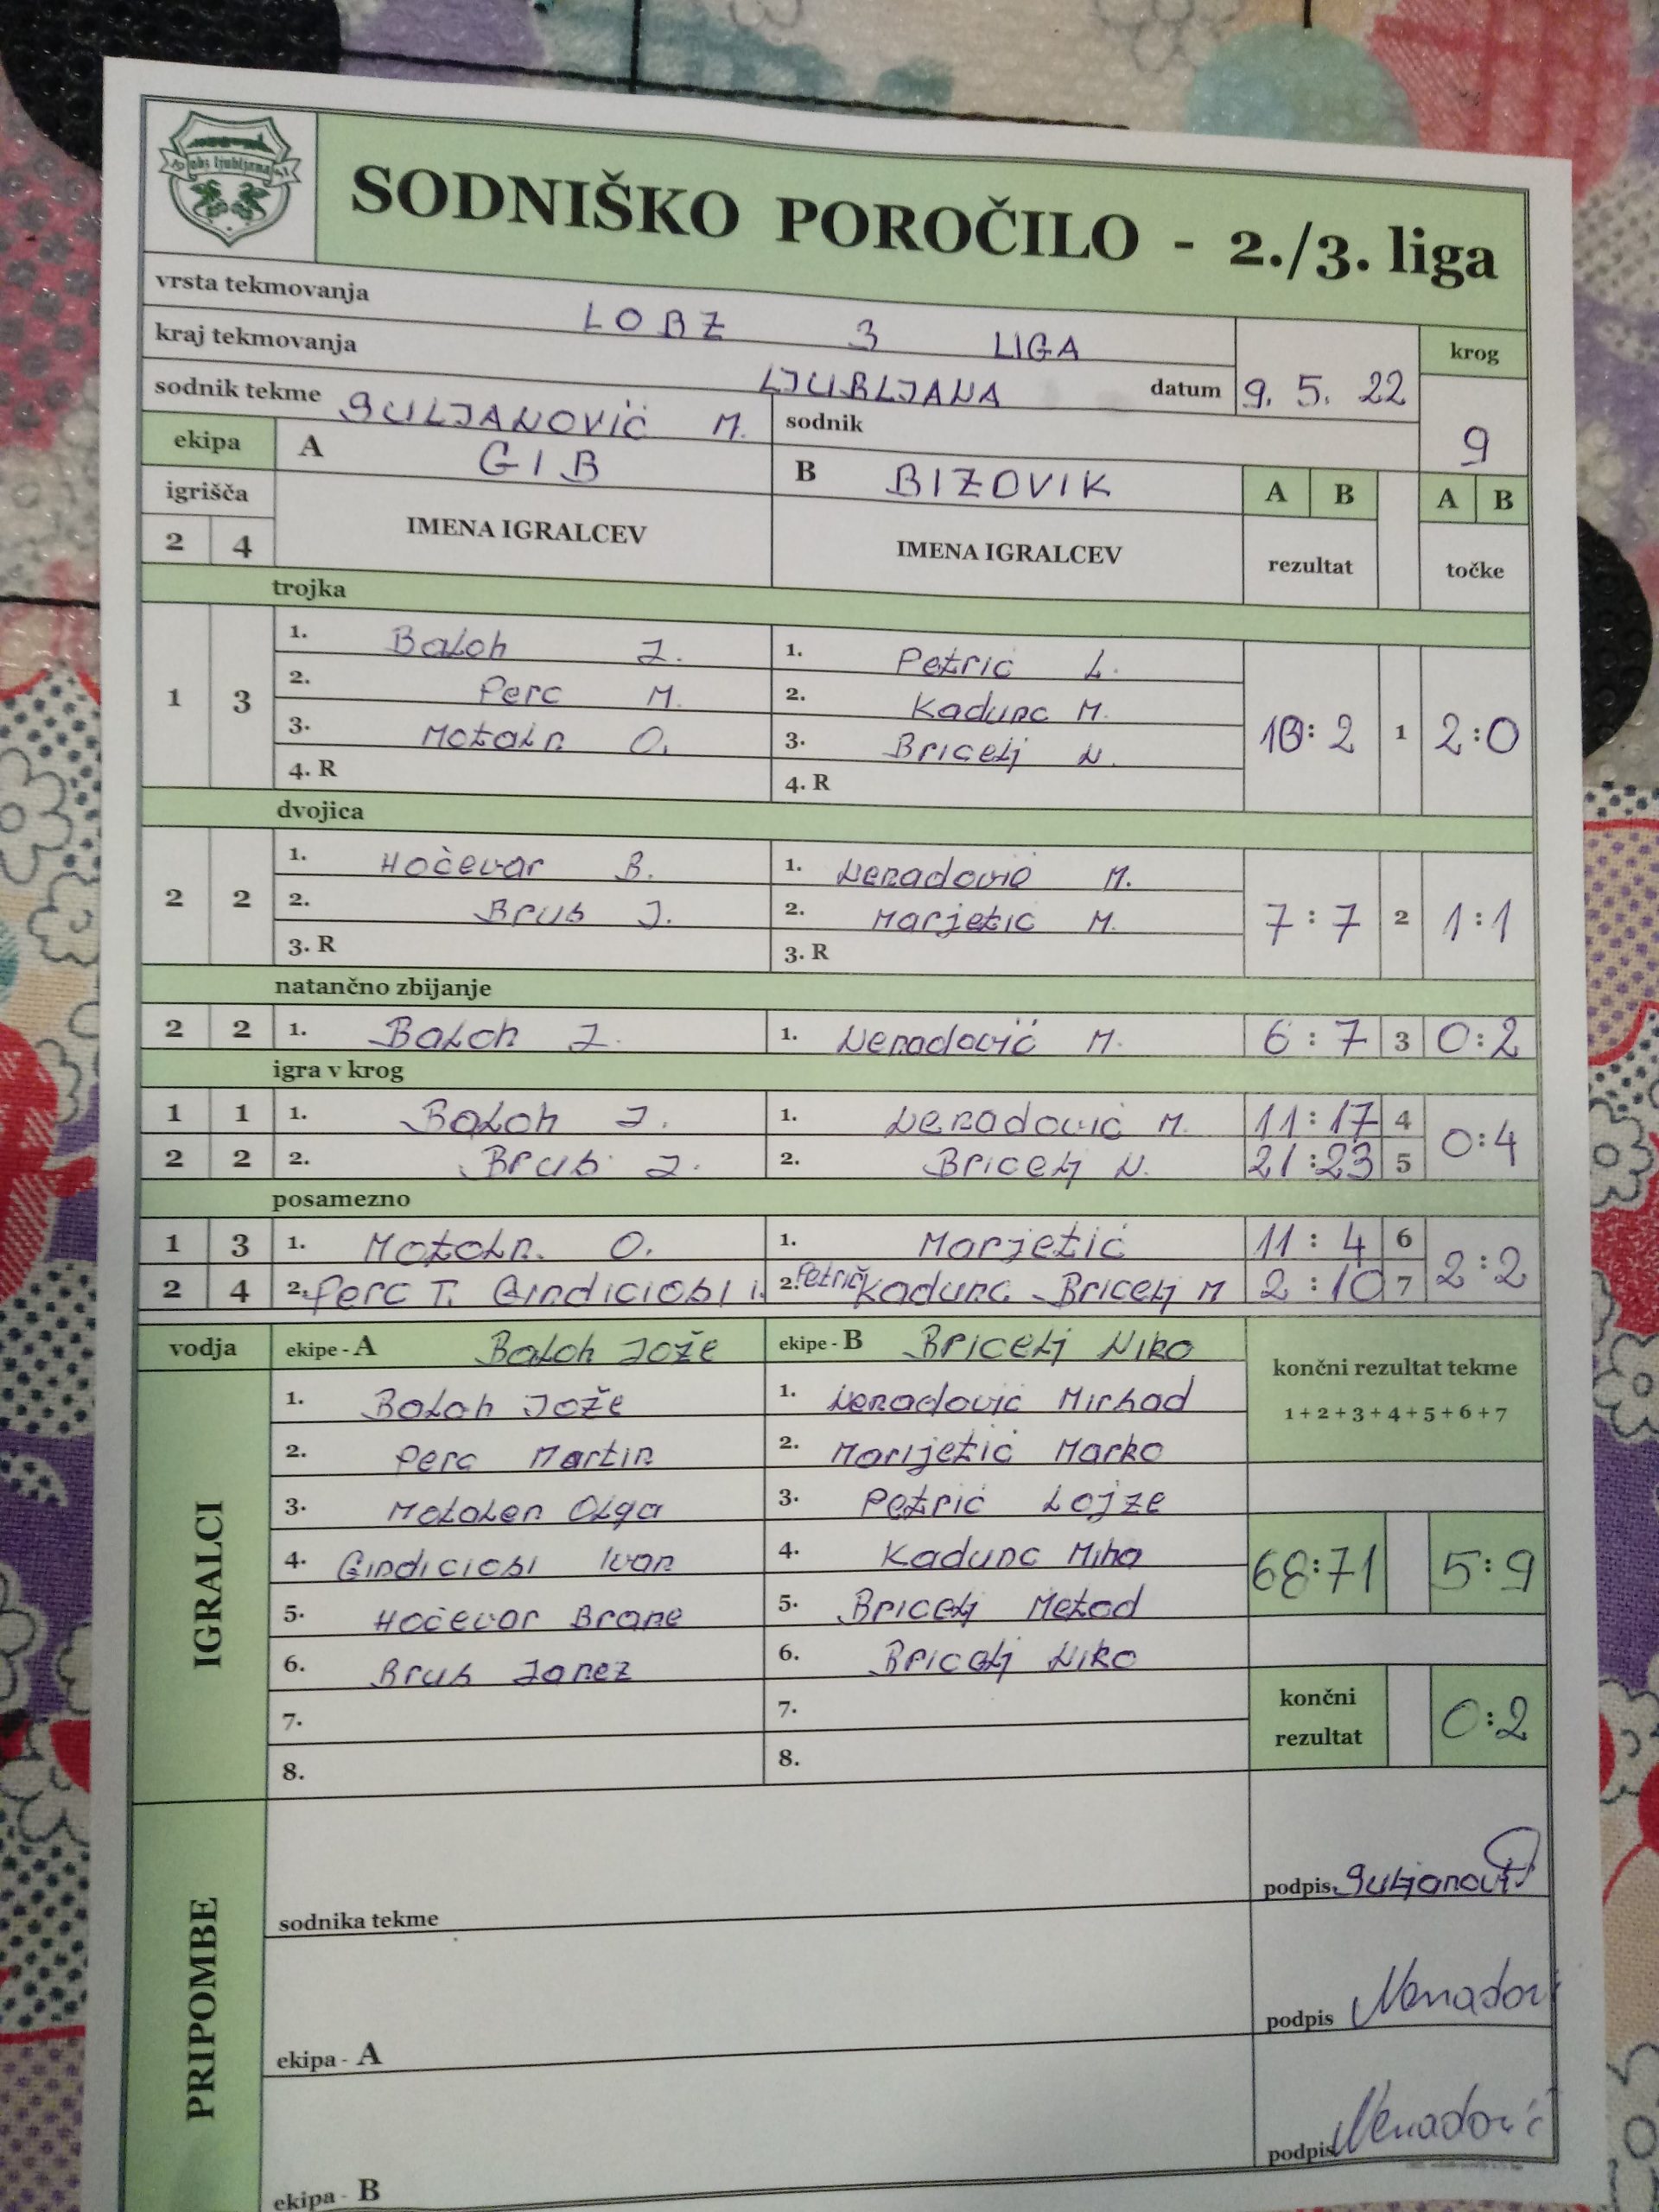 obz ljubljana
SODNIŠKO POROČILO - 2./3. liga
vrsta tekmovanja LOBZ 3 LIGA
kraj tekmovanja LJUBLJANA datum 9. 5. 22 krog
sodnik tekme SULJANOVIĆ M. sodnik 9
ekipa A GIB B BIZOVIK A B A B
igrišča IMENA IGRALCEV IMENA IGRALCEV rezultat točke
2 4
trojka
1 3 1. Baloh J. 1. Petric L. 10:2 1 2:0
2. Perc M. 2. Kadunc M.
3. Motaln O. 3. Bricelj N.
4. R 4. R
dvojica
2 2 1. Hočevar B. 1. Nenadović M. 7:7 2 1:1
2. Brus J. 2. Marjetic M.
3. R 3. R
natančno zbijanje
2 2 1. Baloh J. 1. Nenadović M. 6:7 3 0:2
igra v krog
1 1 1. Baloh J. 1. Nenadović M. 11:17 4 0:4
2 2 2. Brus J. 2. Bricelj N. 21:23 5
posamezno
1 3 1. Motoln. O. 1. Marjetić 11:4 6 2:2
2 4 2. Perc T. Gindiciosi i. 2. Petrič Kadunc Bricelj M 2:10 7
vodja ekipe - A Baloh Jože ekipe - B Bricelj Niko končni rezultat tekme
1+2+3+4+5+6+7
IGRALCI
1. Baloh Jože 1. Nenadović Mirhad
2. Perc Martin 2. Marijetić Marko
3. Motolen Olga 3. Petrić Lojze
4. Gindiciosi Ivan 4. Kadunc Miha 68:71 5:9
5. Hočevar Brane 5. Bricelj Metod
6. Brus Janez 6. Bricelj Niko
7. 7. končni rezultat 0:2
8. 8.
PRIPOMBE
sodnika tekme podpis
ekipa - A podpis Nenadov
ekipa - B podpis Nenadović